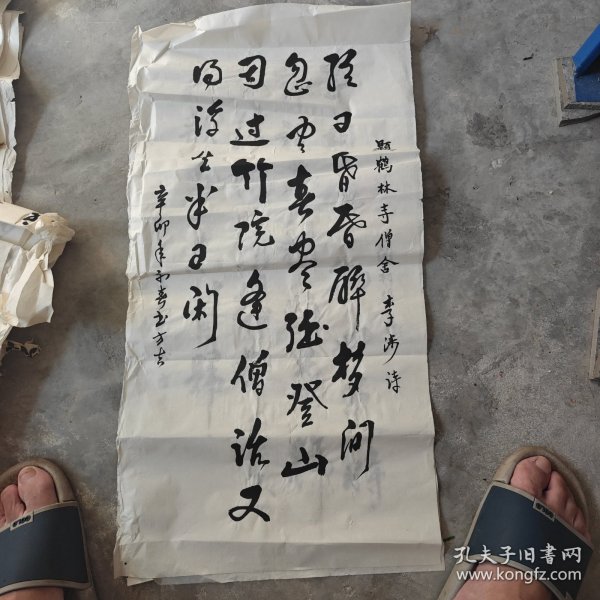 题鹤林寺僧舍 李涉诗
终日昏昏醉梦间
忽闻春尽强登山
因过竹院逢僧话又
得浮生半日闲
辛卯年初春书
孔夫子旧书网
www.kongfz.com